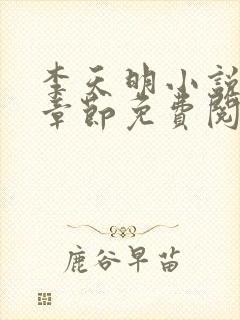 李天明小說
章節免費閱
鹿谷早苗